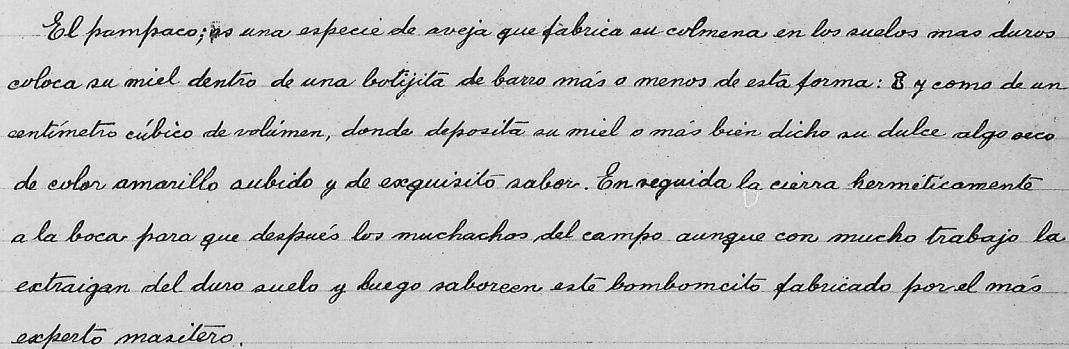 El pampaco; es una especie de aveja que fabrica su colmena en los suelos mas duros
coloca su miel dentro de una botijita de barro más o menos de esta forma: 8 y como de un
centímetro cúbico de volúmen, donde deposita su miel o más bien dicho su dulce algo seco
de color amarillo subido y de exquisito sabor. En seguida la cierra herméticamente
a la boca para que después los muchachos del campo aunque con mucho trabajo la
extraigan del duro suelo y luego saboreen este bombomcito fabricado por el más
experto masitero.